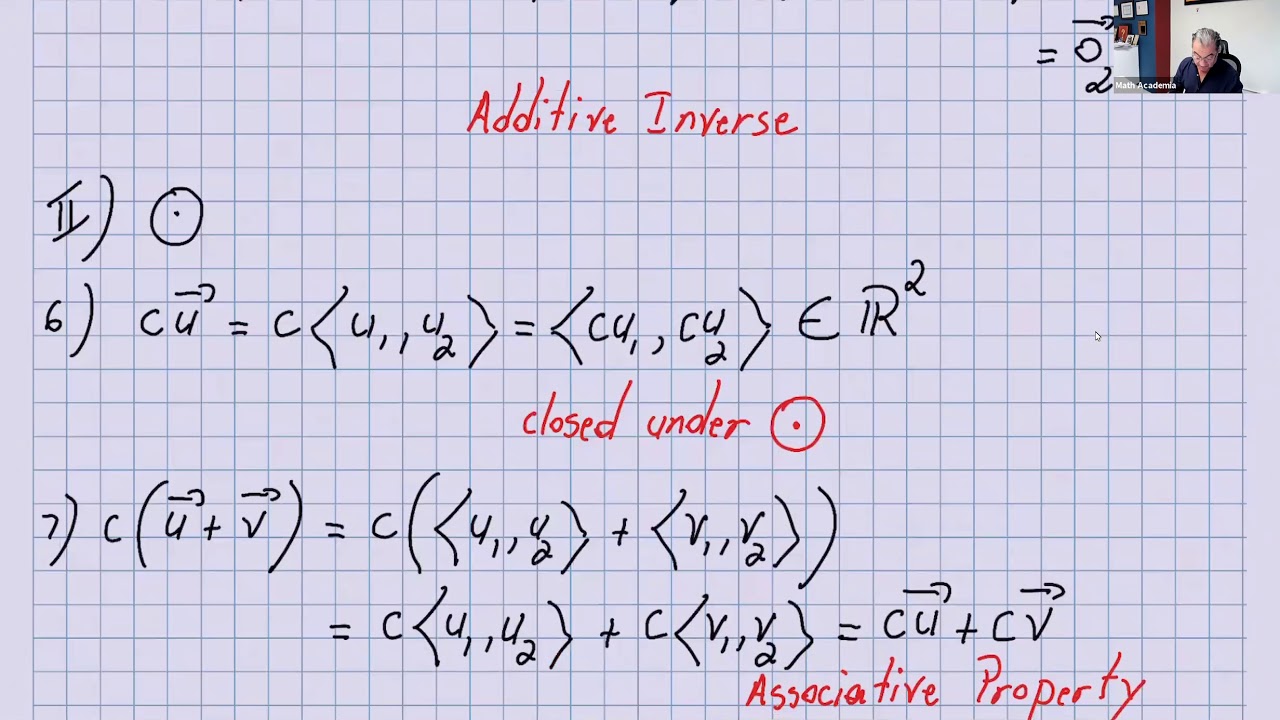 = 0⃗₂
Math Academia
Additive Inverse
II) ⊙
6) cu⃗ = c⟨u₁, u₂⟩ = ⟨cu₁, cu₂⟩ ∈ ℝ²
closed under ⊙
7) c(u⃗ + v⃗) = c(⟨u₁, u₂⟩ + ⟨v₁, v₂⟩)
= c⟨u₁, u₂⟩ + c⟨v₁, v₂⟩ = cu⃗ + cv⃗
Associative Property